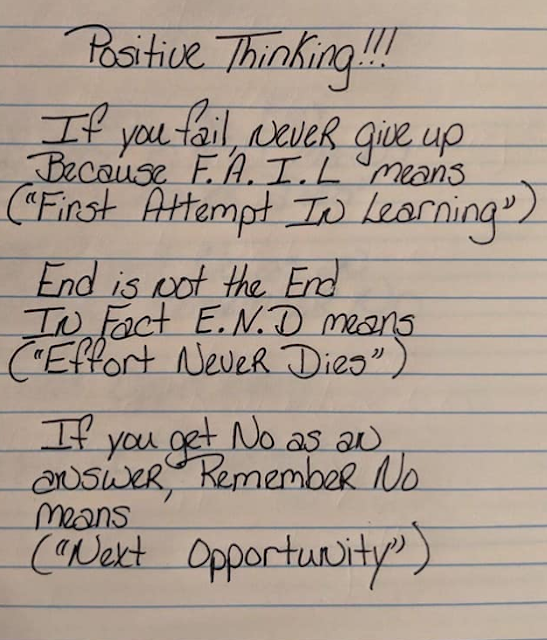 Positive Thinking!!!
If you fail, never give up
Because F.A.I.L means
("First Attempt In Learning")
End is not the End
In Fact E.N.D means
("Effort Never Dies")
If you get No as an
answer, Remember No
means
("Next Opportunity")